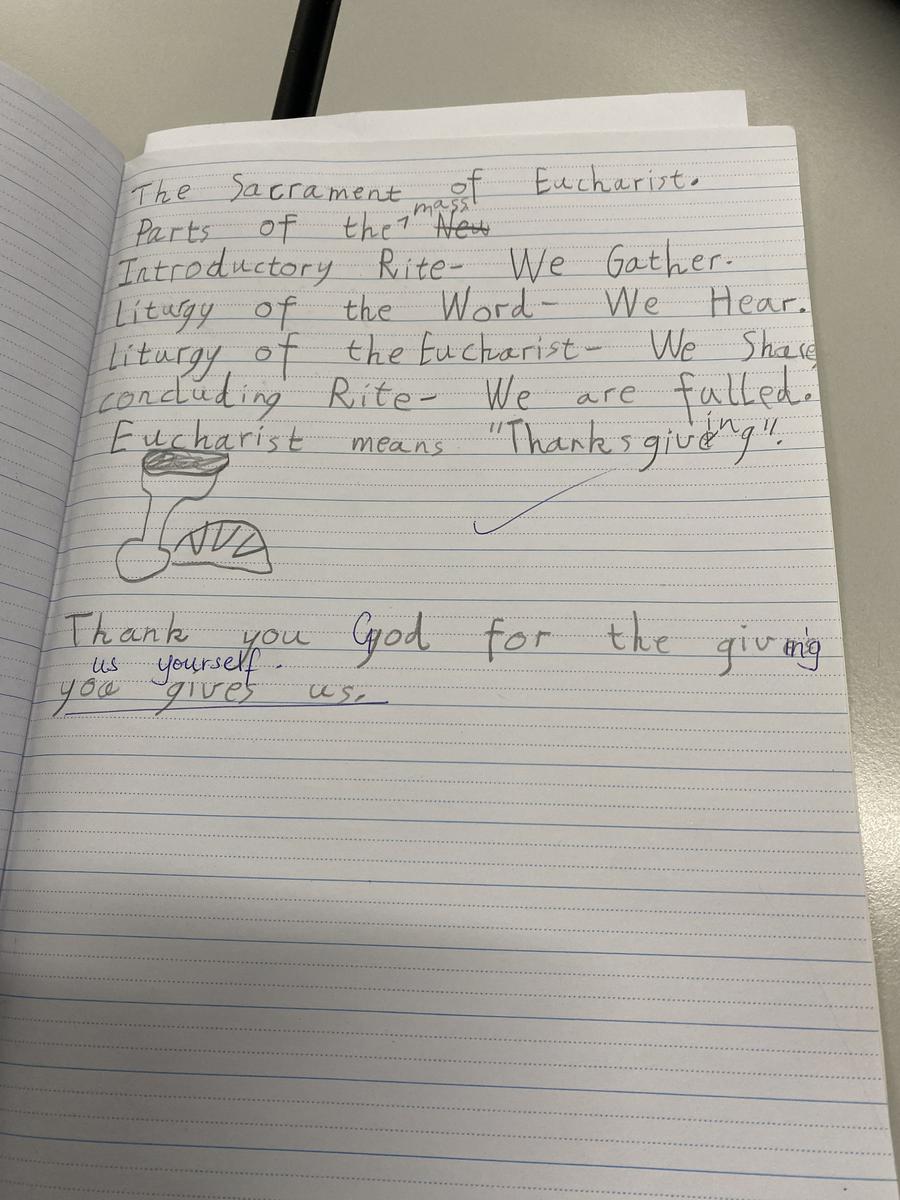 The Sacrament of Eucharist.
Parts of the mass New
Introductory Rite- We Gather.
Liturgy of the Word- We Hear.
Liturgy of the Eucharist- We Share
concluding Rite- We are fulled.
Eucharist means "Thanksgiving".
Thank you God for the giving
us yourself.
you gives us.